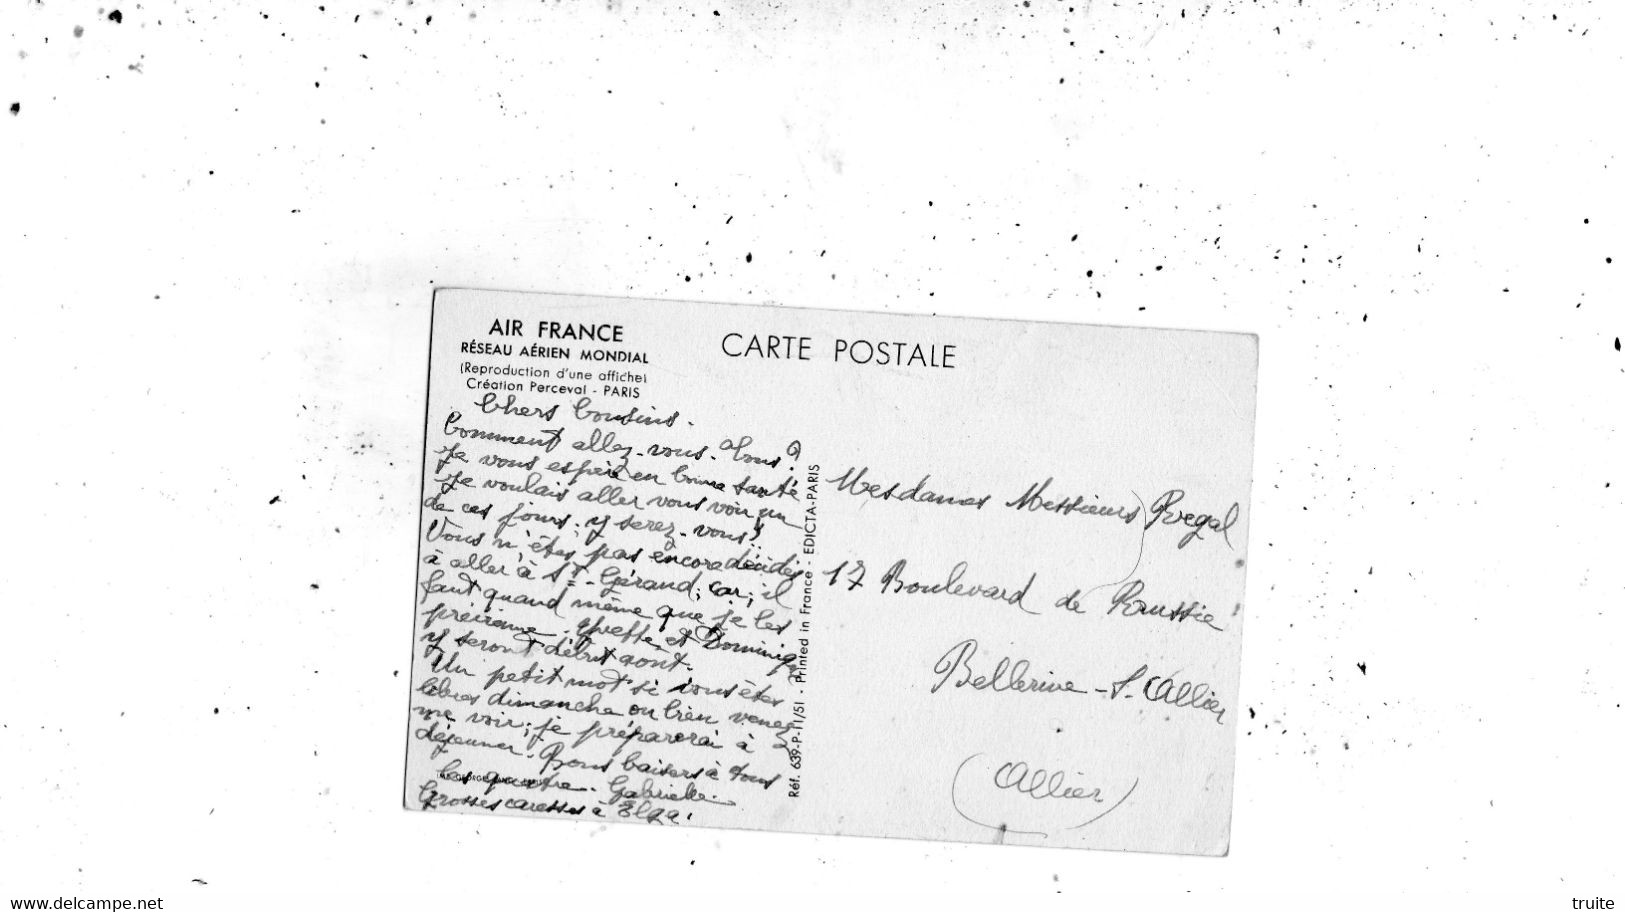 AIR FRANCE
RÉSEAU AÉRIEN MONDIAL
(Reproduction d'une affiche)
Création Perceval - PARIS
CARTE POSTALE
Chers Cousins.
Comment allez-vous. Tous?
Je vous espère en bonne santé
Je voulais aller vous voir un
de ces jours; y serez-vous!
Vous n'êtes pas encore décidés
à aller à St-Gérand; car; il
faut quand même que je les
prévienne. Yvette et Dominique
y seront début août.
Un petit mot si vous êtes
libres dimanche ou bien venez
me voir; je préparerai à
déjeuner. Bons baisers à tous
les quatre. Gabrielle.
Grosses caresses à Elga.
Réf. 639-P-11/51 - Printed in France - EDICTA-PARIS
Mesdames Messieurs
17 Boulevard de
Bellerive-s-Allier
(Allier)
www.delcampe.net
truite